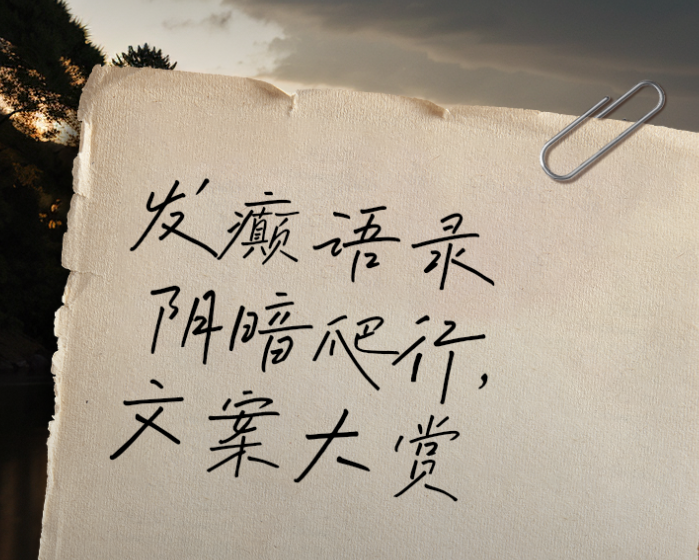 发癫语录
阴暗爬行,
文案大赏